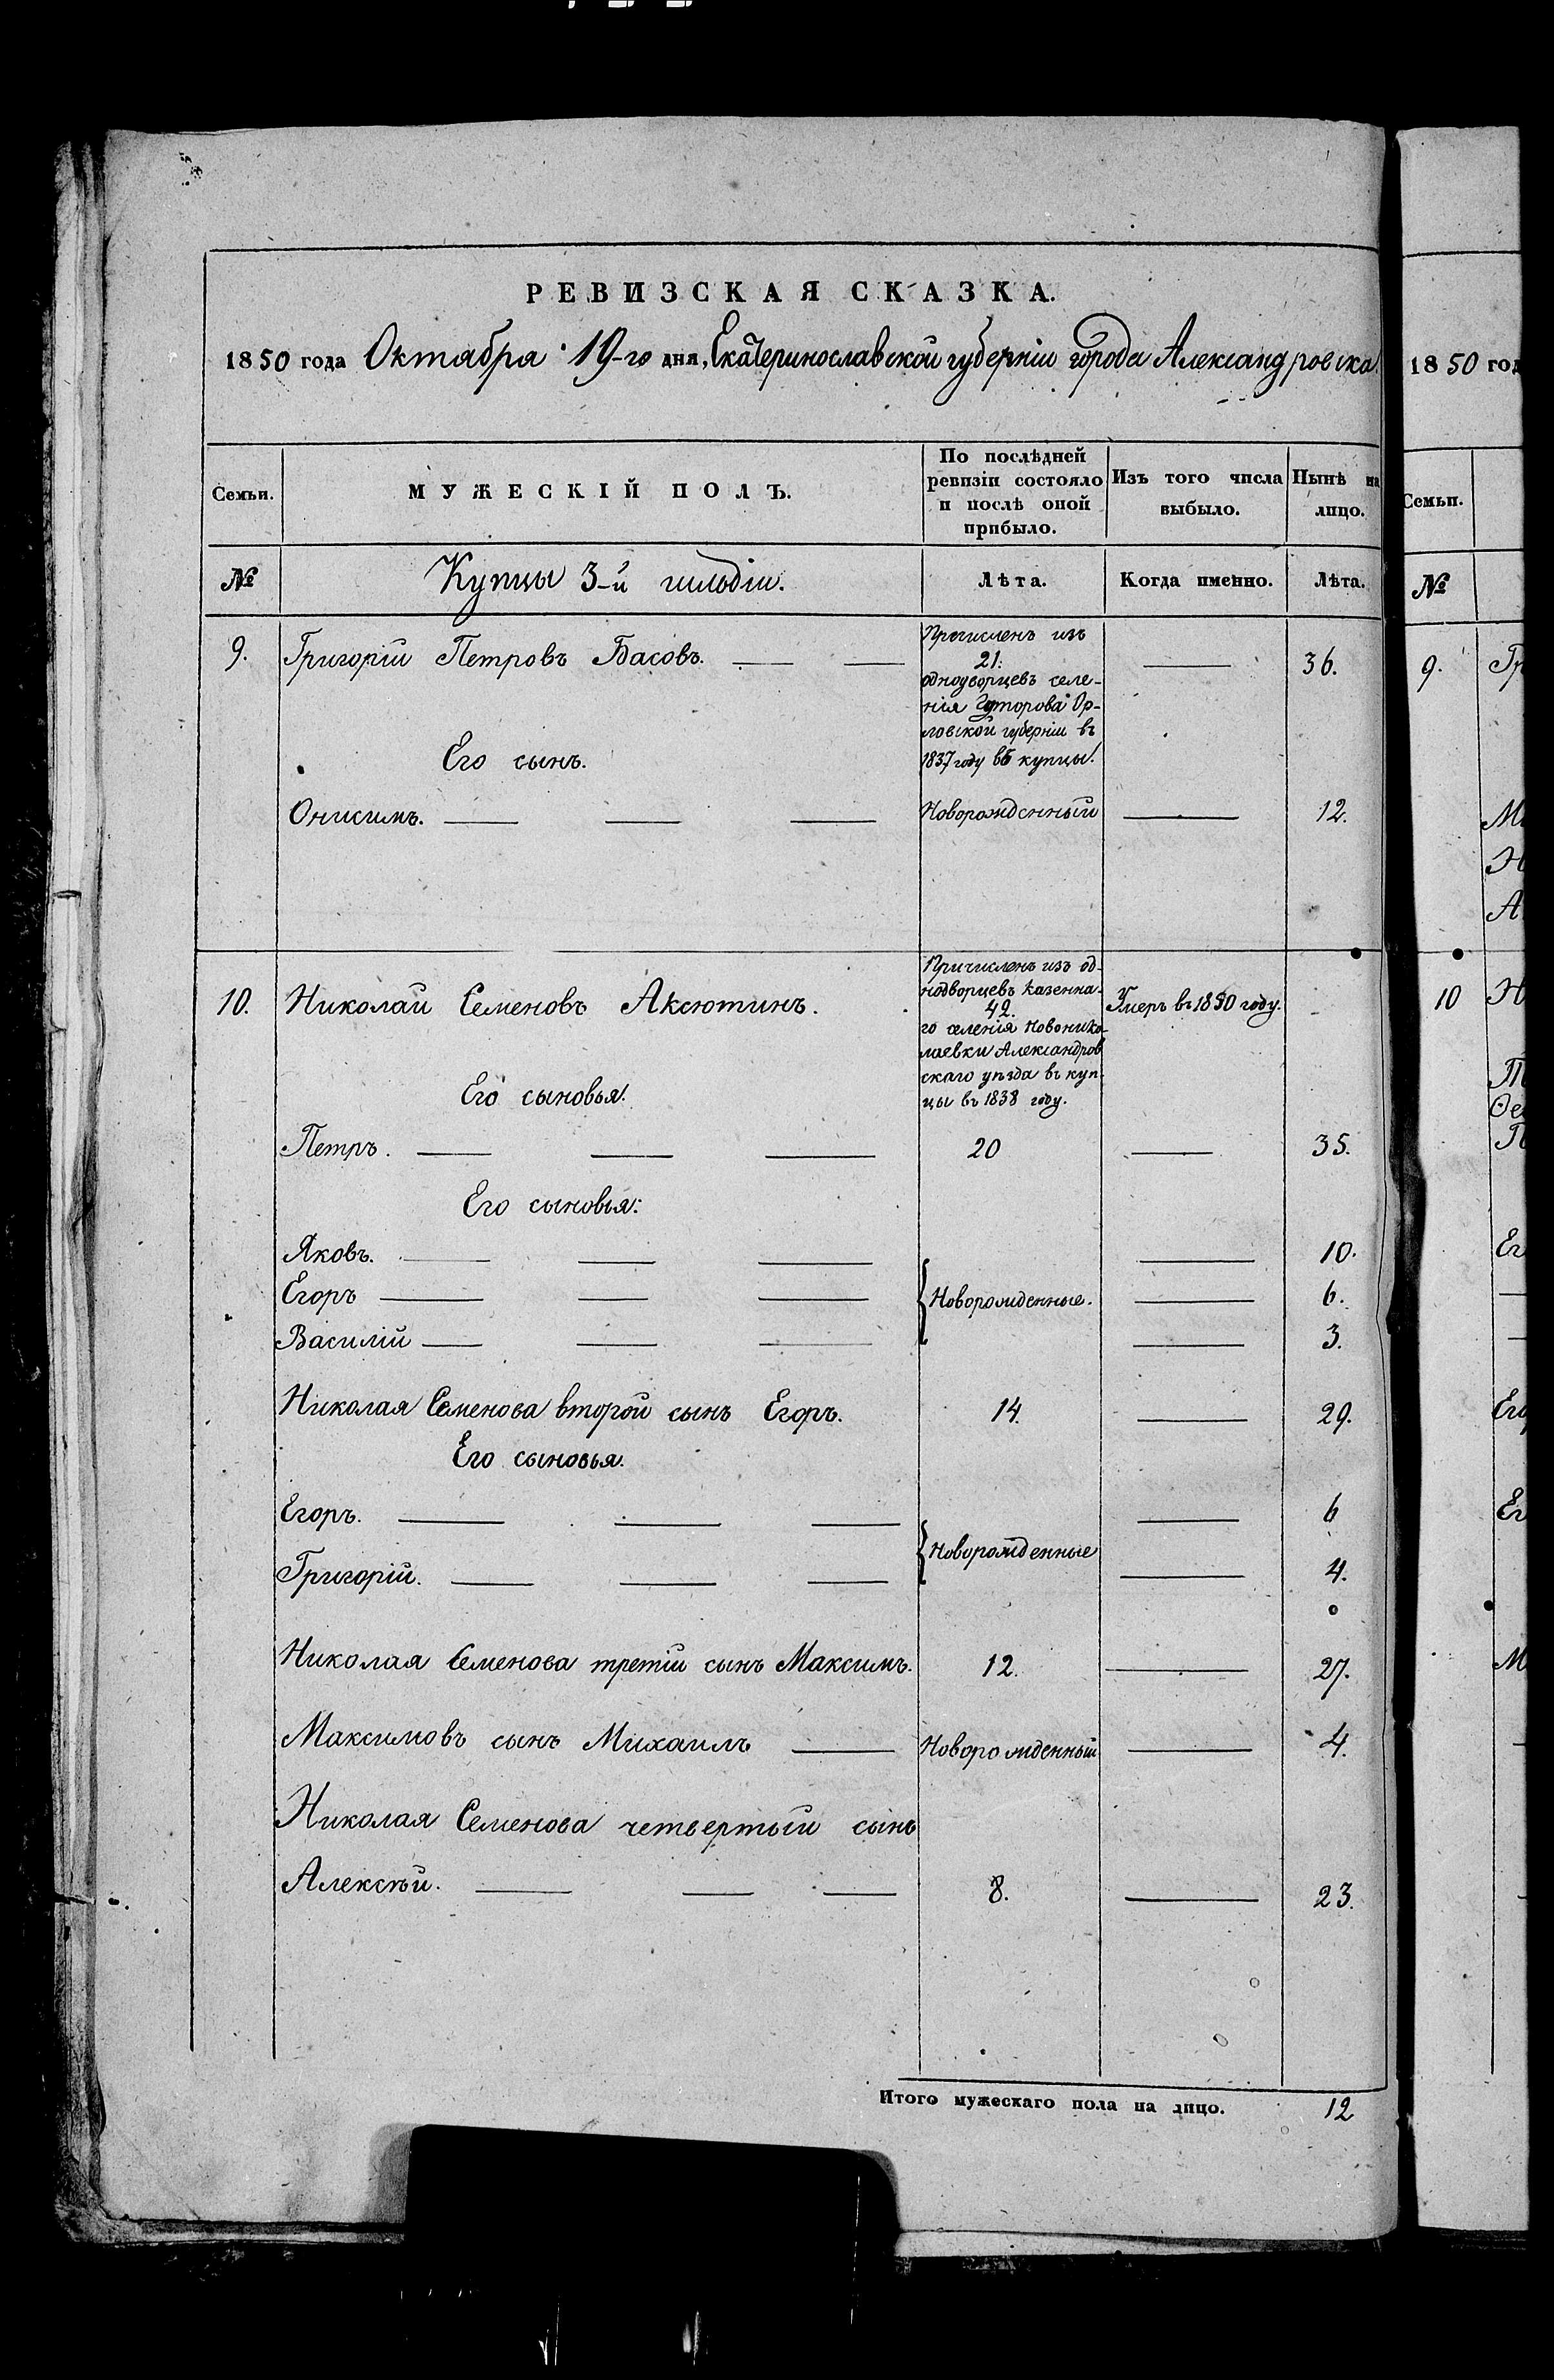 РЕВИЗСКАЯ СКАЗКА.
1850 года Октября 19-го дня, Екатеринославской губерніи города Александровска.
Семьи.
МУЖЕСКІЙ ПОЛЪ.
По послѣдней
ревизіи состояло
и послѣ оной
прибыло.
Изъ того числа
выбыло.
Нынѣ на
лицо.
№
Купцы 3-й гильдіи.
Лѣта.
Когда именно.
Лѣта.
9. Григорій Петровъ Басовъ. — — Причисленъ изъ — 36.
21.
однодворцевъ селе-
нія Гуторова Ор-
ловской губерніи въ
1837 году въ купцы.
Его сынъ.
Онисимъ. — — — Новорожденный — 12.
10. Николай Семеновъ Аксютинъ. Причисленъ изъ од- Умеръ въ 1850 году.
нодворцевъ казенна-
42.
го селенія Новонико-
лаевки Александров
скаго уѣзда въ куп-
цы въ 1838 году.
Его сыновья.
Петръ. — — — 20 — 35.
Его сыновья:
Яковъ. — — — — 10.
Егоръ — — — Новорожденные. — 6.
Василій — — — — 3.
Николая Семенова второй сынъ Егоръ. 14. — 29.
Его сыновья.
Егоръ. — — — — 6
Новорожденные
Григорій. — — — — 4.
Николая Семенова третій сынъ Максимъ. 12. — 27.
Максимовъ сынъ Михаилъ — Новорожденный — 4.
Николая Семенова четвертый сынъ
Алексѣй. — — — 8. — 23.
Итого мужескаго пола на лицо. 12
1850 год
Семьи.
№
9. Гр
М
Н
А
10 Н
Ѳе
П
Ег
Его
Ег
М